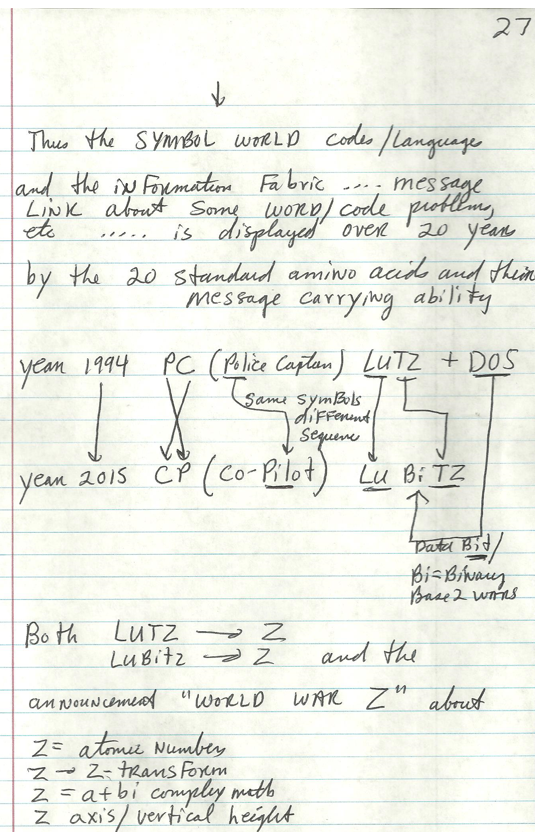 27
Thus the SYMBOL WORLD codes/Languages
and the inFormation Fabric .... message
LINK about Some WORD/code problem,
etc ..... is displayed over 20 years
by the 20 standard amino acids and their
message carrying ability
year 1994 PC (Police Captain) LUTZ + DOS
Same symBols
different
Sequence
year 2015 CP (Co-Pilot) Lu Bi TZ
Data Bit/
Bi=Binary
Base 2 wars
Both LUTZ → Z
LuBitz → Z and the
announcement "WORLD WAR Z" about
Z = atomic Number
Z → Z-transForm
Z = a+bi complex math
Z axis/vertical height